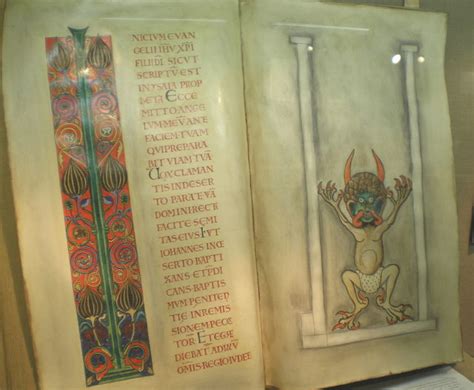 NICIUM EVAN
GELII IHV XPI
FILII DI SICUT
SCRIPTŪ EST
IN YSAIA PROP
HETA ECCE
MITTO ANGE
LUM MEŪ ANTE
FACIEM TUAM
QUI PREPARA
BIT VIAM TUĀ
VOX CLAMAN
TIS IN DESER
TO PARATE VIĀ
DOMINI RECT
FACITE SEMI
TAS EIUS FUIT
IOHANNES IN DE
SERTO BAPTI
ZANS ET PDI
CANS BAPTIS
MUM PENITEN
TIE IN REMIS
SIONEM PEC
TOR ET EGRE
DIEBAT AD ILLŪ
OMIS REGIO IUDE